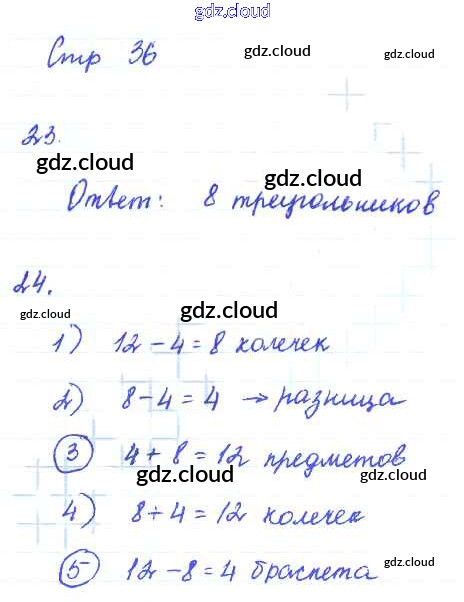 gdz.cloud
Стр 36 gdz.cloud gdz.cloud
23. gdz.cloud
gdz.cloud gdz.cloud
Ответ: 8 треугольников
24.
gdz.cloud gdz.cloud gdz.cloud
1) 12 - 4 = 8 колечек
2) 8 - 4 = 4 → разница gdz.cloud
3 4 + 8 = 12 предметов
gdz.cloud gdz.cloud
4) 8 + 4 = 12 колечек
5 12 - 8 = 4 браслета
gdz.cloud gdz.cloud